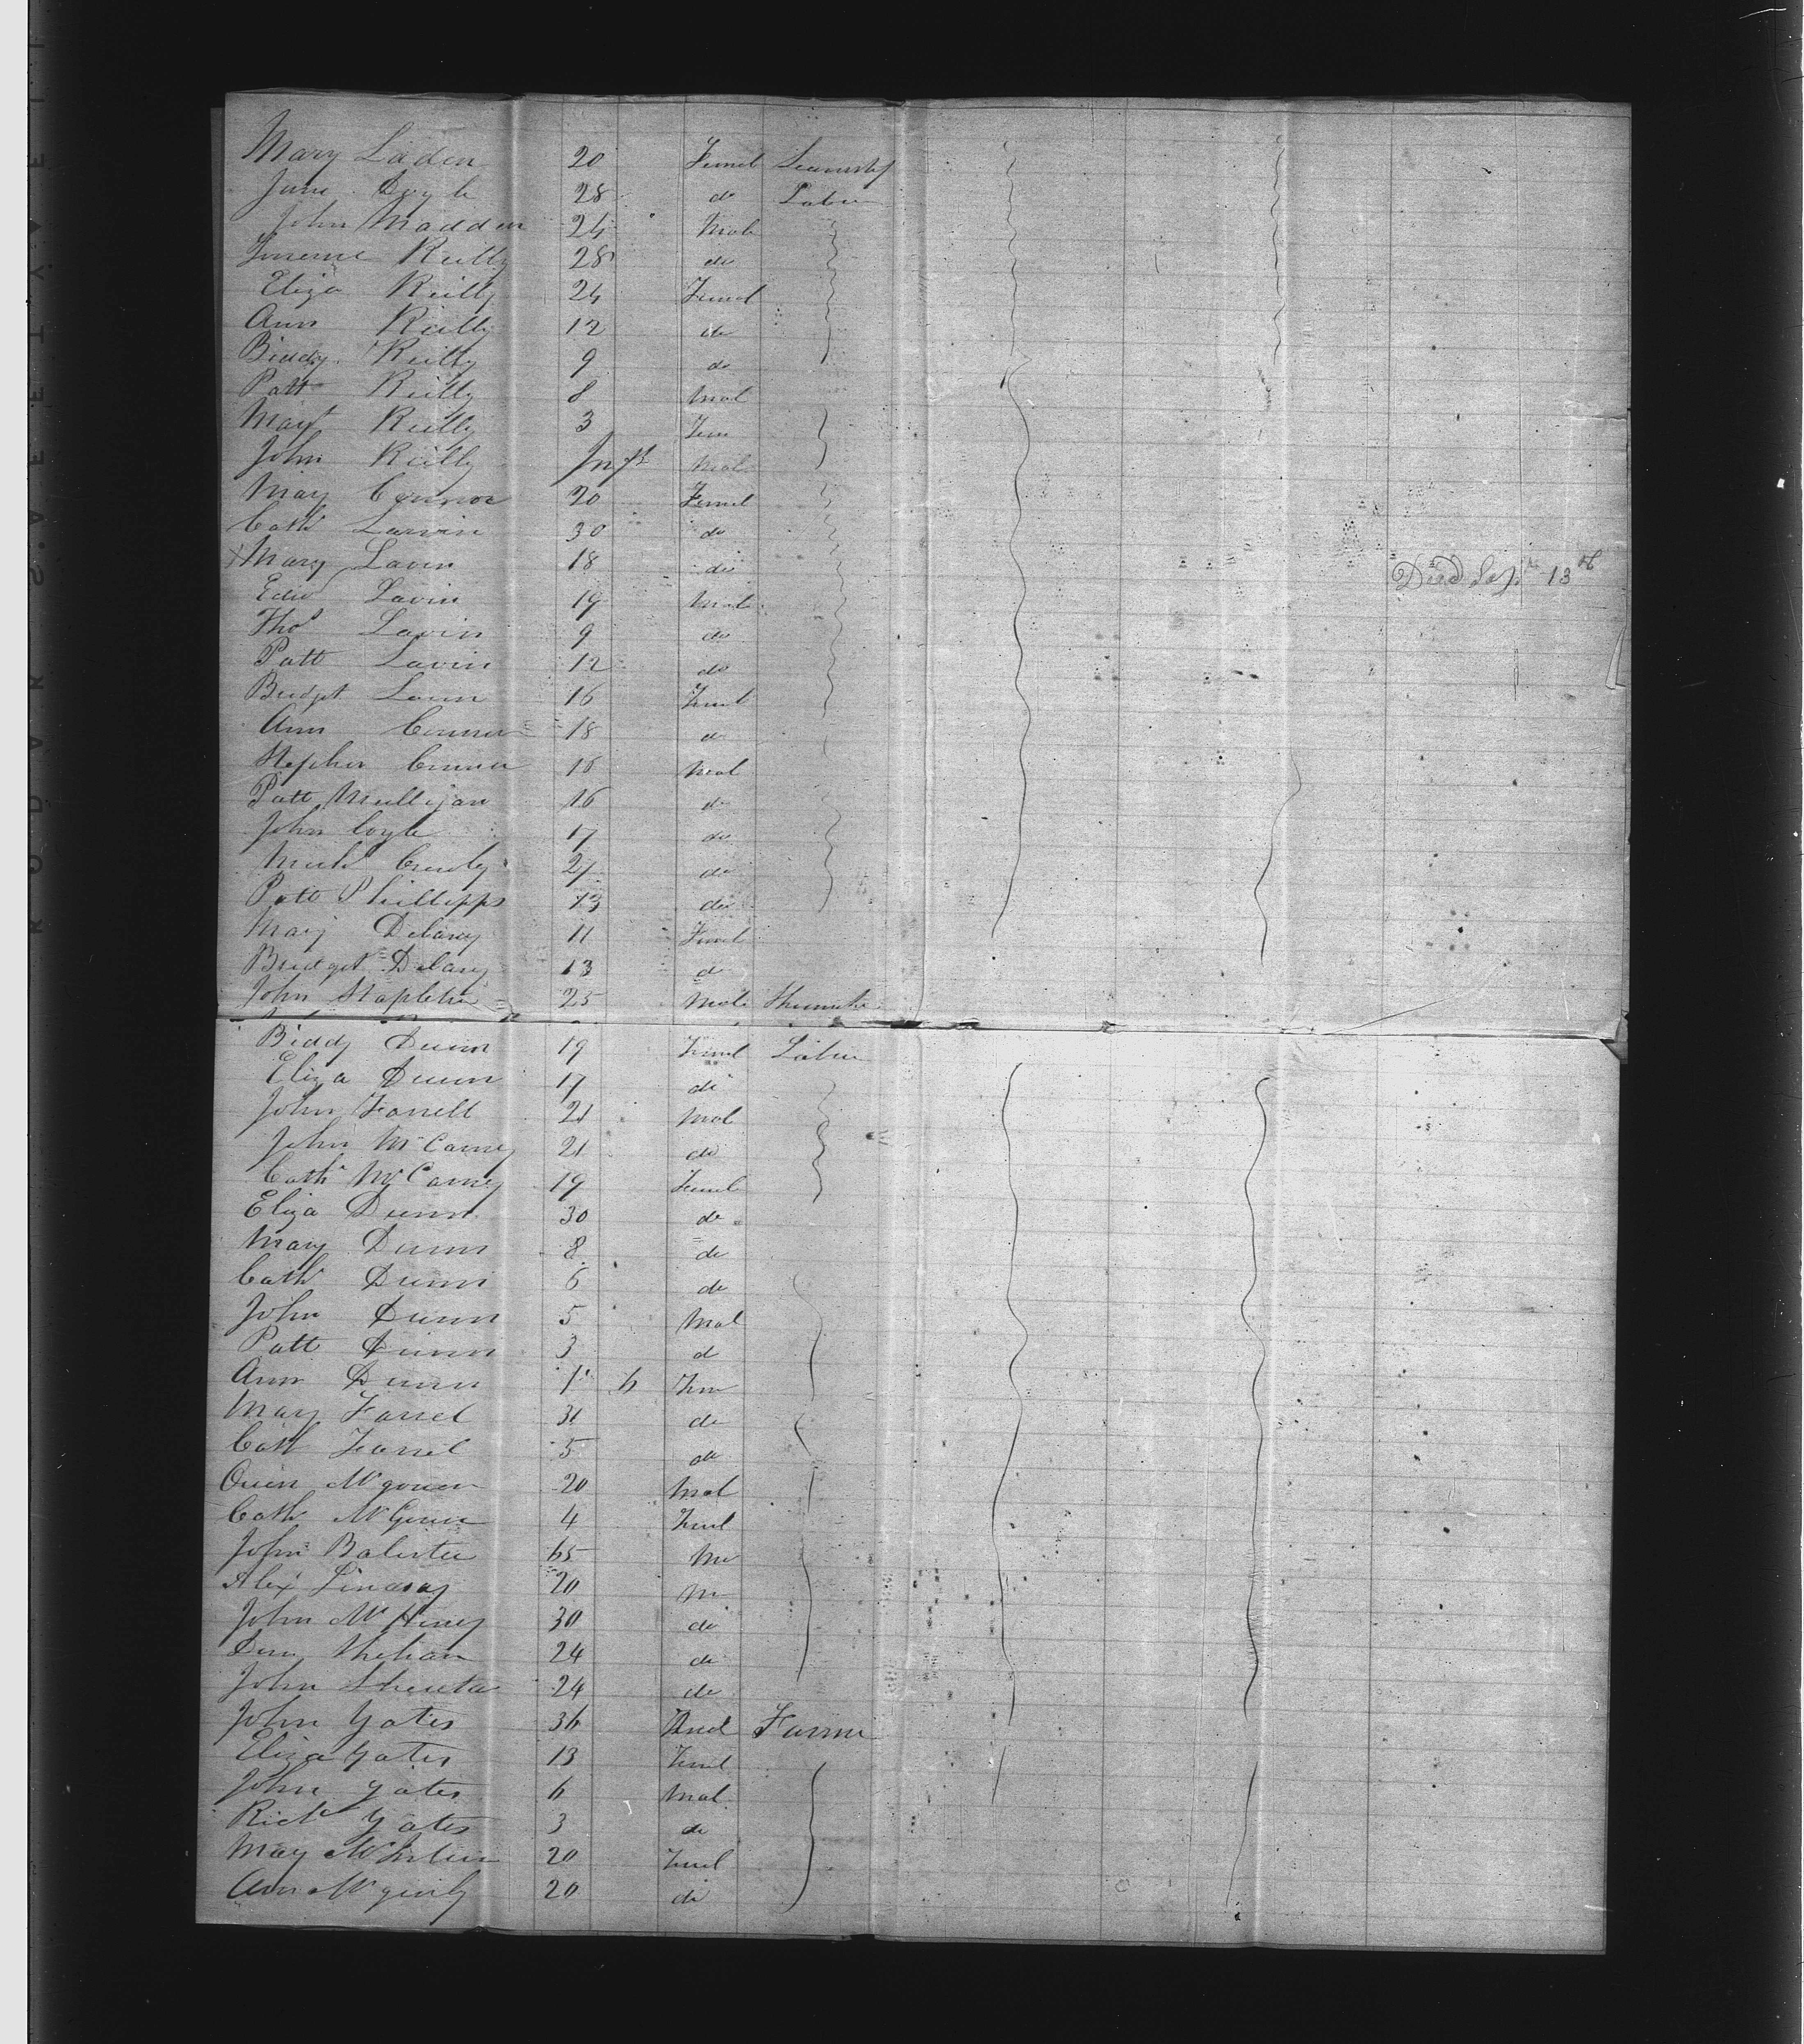 Mary Laden 20 Femel
Jane Doyle 28 do Labu
John Madden 24 Male
Reilly 28 do
Eliza Reilly 24 Femel
Ann Reilly 12 do
Biddy Reilly 9 do
Patt Reilly 8 Mal
Mary Reilly 3 Fem
John Reilly Inft Male
Mary Connor 20 Femel
Cath Larvin 30 do
x Mary Lavin 18 do Died Sept 13th
Edw Lavin 19 Male
Thos Lavin 9 do
Patt Lavin 12 do
Bridget Lavin 16 Femel
Ann Connor 18 do
Stephen Connor 16 Mal
Patt Mulligan 16 do
John Coyle 17 do
Michl 27 do
Patt Phillipps 13 do
Mary Delany 11 Femel
Bridget Delany 13 do
John Stapleton 25 Male
Biddy Dunn 19 Femel Labu
Eliza Dunn 17 do
John Farrell 21 Mal
John McCarney 21 do
Cath McCarney 19 Femel
Eliza Dunn 30 do
Mary Dunn 8 do
Cath Dunn 6 do
John Dunn 5 Mal
Patt Dunn 3 d
Ann Dunn 1 Fem
Mary Farrel 31 do
Cath Farrel 5 do
Owen McGowan 20 Mal
Cath McGowan 4 Femel
John 65 M
Alex Lindsay 20 M
John McHenry 30 do
24 do
John 24 do
John Yates 36 Farmer
Eliza Yates 13 Femel
John Yates 6 Mal
Rich Yates 3 do
Mary 20 Femel
Ann 20 do
KODAK SAFETY